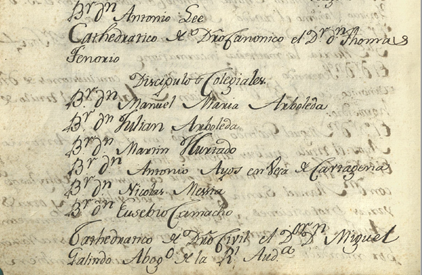 Br Dn Antonio Lee
Cathedratico de Dro Canonico el Dr Dn Thomas
Tenorio
Discipulos Colegiales.
Br Dn Manuel Maria Arboleda
Br Dn Julian Arboleda
Br Dn Martin Hurtado
Br Dn Antonio Ayos de Cartagena
Br Dn Nicolas
Br Dn Eusebio Camacho
Cathedratico de Dro Civil el Dor Dn Miguel
Galindo Abogo de la Rl Auda